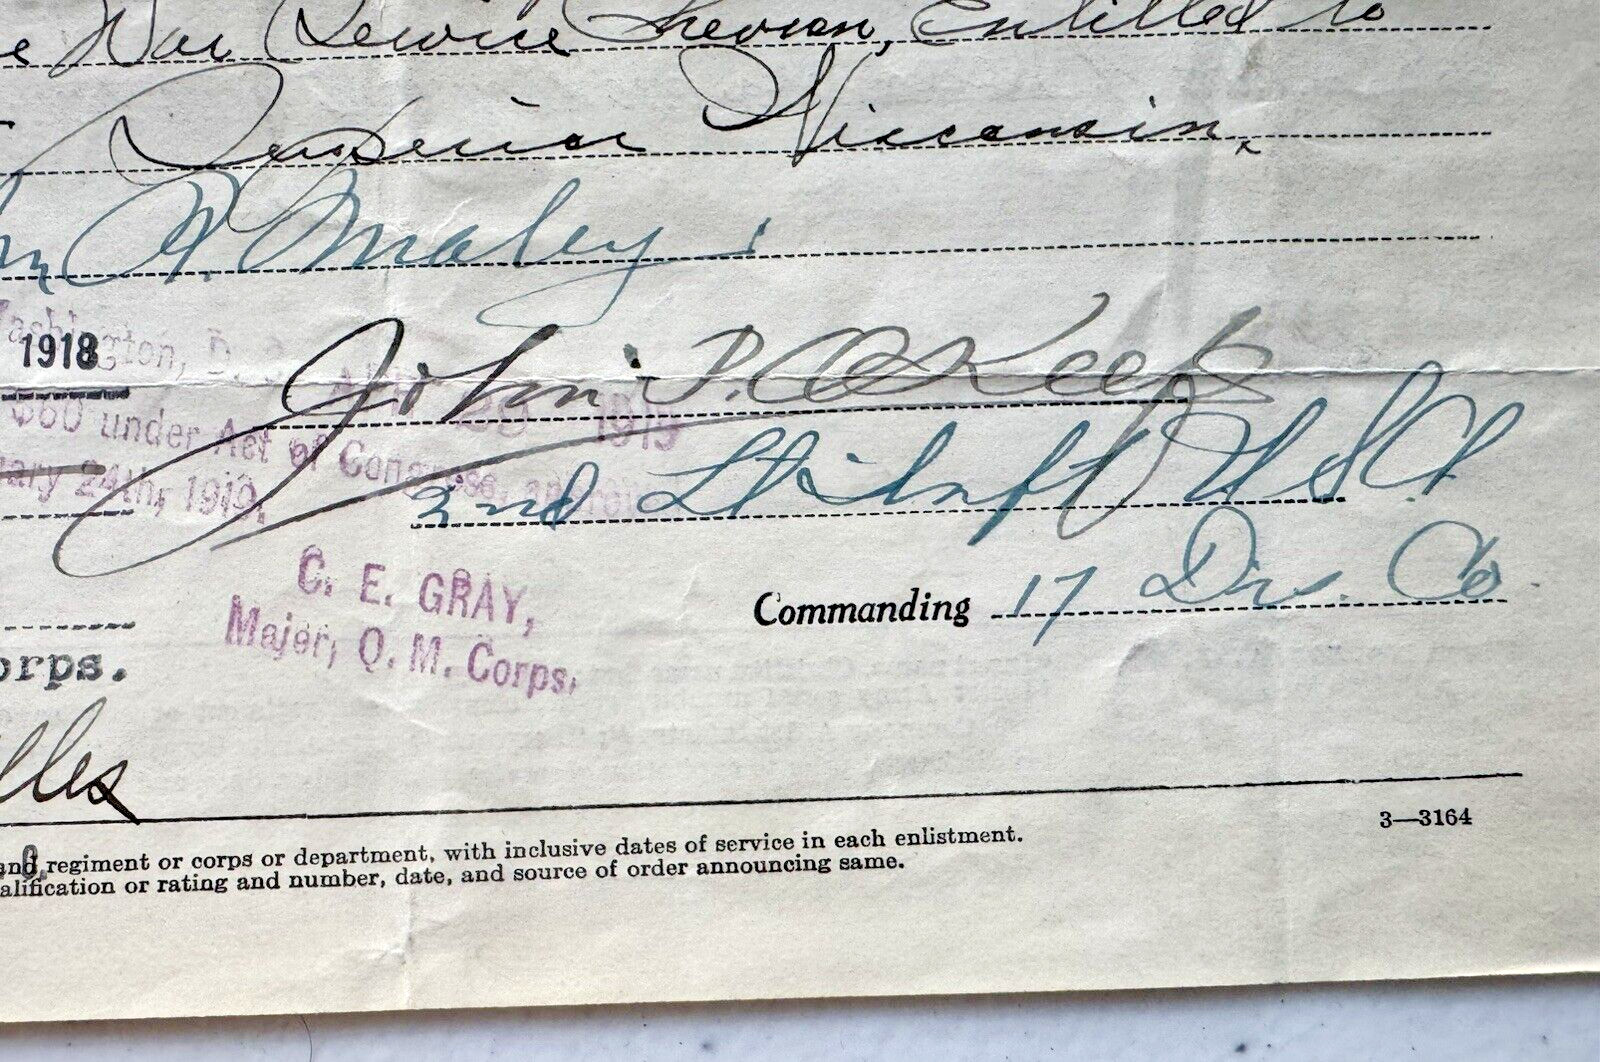 e War Service Chevron, Entitled to
Superior Wisconsin,
m A. Maley
Washington, D. C.
1918
John P. O'Keefe
1919
$60 under Act of Congress,
ary 24th, 1919.
2nd Lt Inft U S A
C. E. GRAY,
Major, Q. M. Corps.
Commanding 17 Dis. Co
orps.
lles
3—3164
and regiment or corps or department, with inclusive dates of service in each enlistment.
alification or rating and number, date, and source of order announcing same.